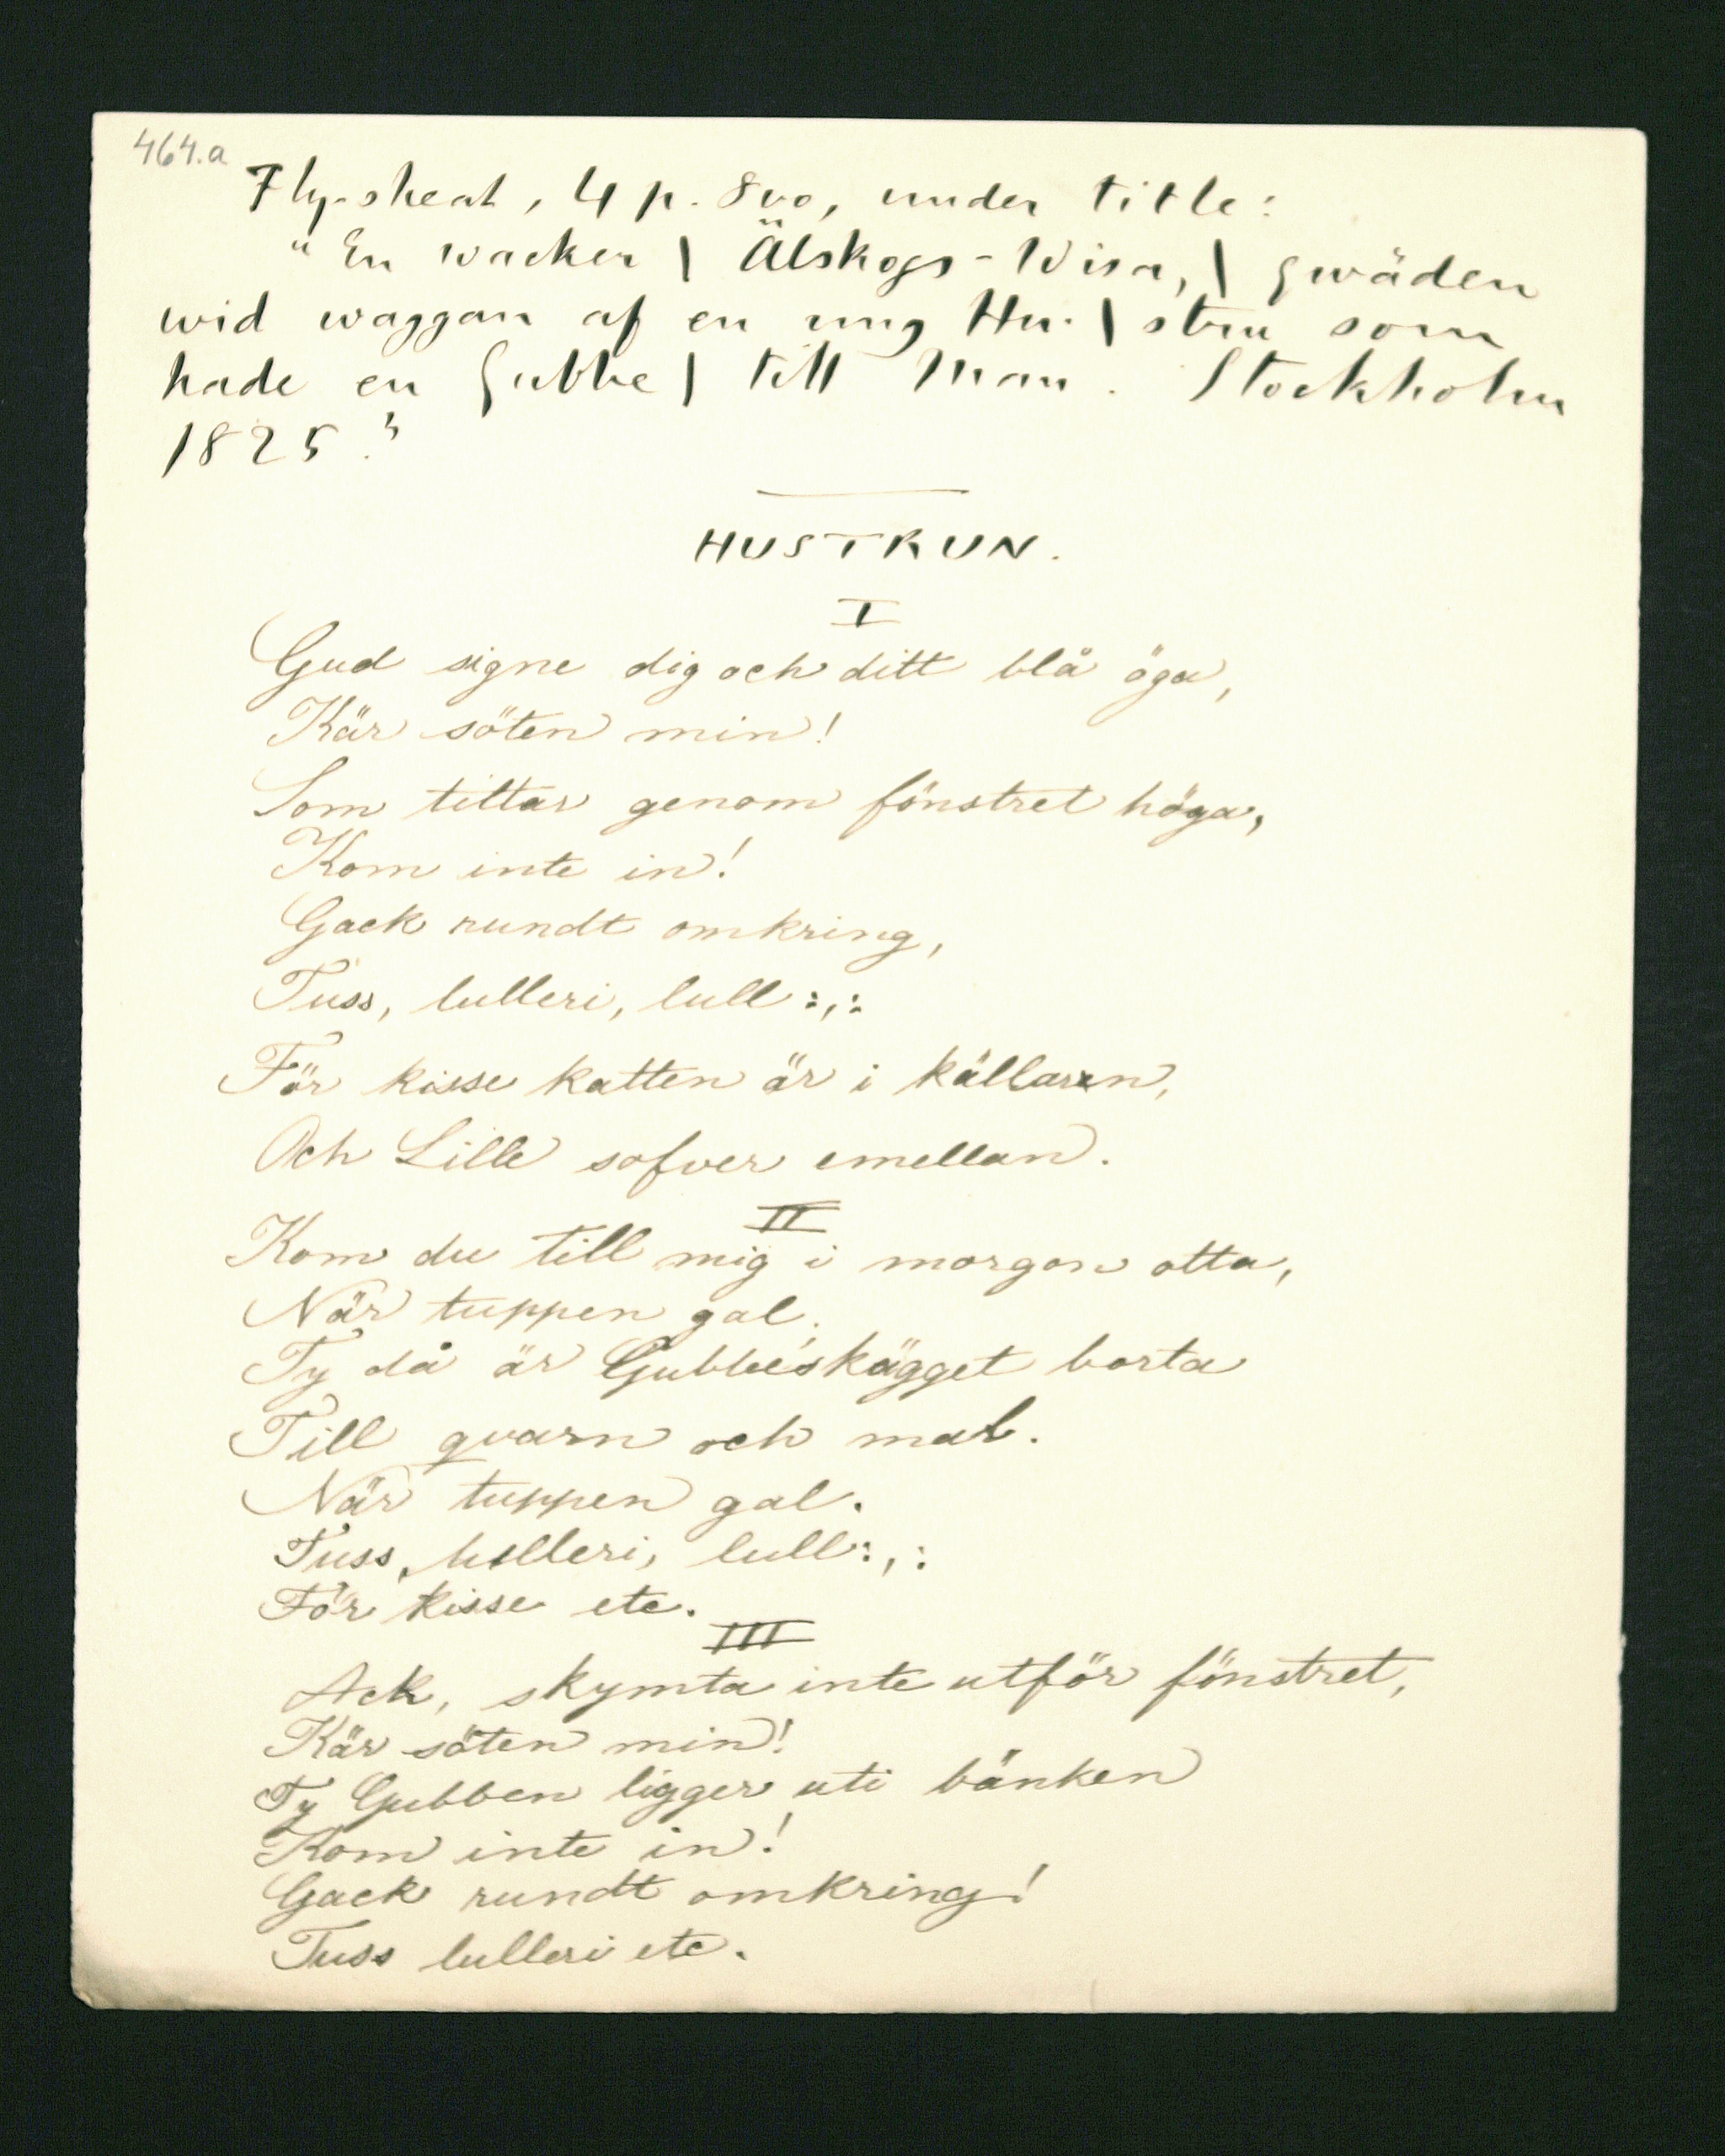 464.a
Fly-sheet, 4 p. 8vo, under title:
"En wacker | Älskogs-Wisa, | qwäden
wid waggan af en ung Hu- | stru som
hade en Gubbe | till Man. Stockholm
1825."
HUSTRUN.
I
Gud signe dig och ditt blå öga,
Kär söten min!
Som tittar genom fönstret höga,
Kom inte in!
Gack rundt omkring,
Tuss, lulleri, lull :,:
För kisse katten är i källaren,
Och Lille sofver emellan.
II
Kom du till mig i morgon otta,
När tuppen gal;
Ty då är Gubbeskägget borta
Till qvarn och mal.
När tuppen gal.
Tuss, lulleri, lull :,:
För kisse etc.
III
Ack, skymta inte utför fönstret,
Kär söten min!
Ty Gubben ligger uti bänken
Kom inte in!
Gack rundt omkring!
Tuss lulleri etc.